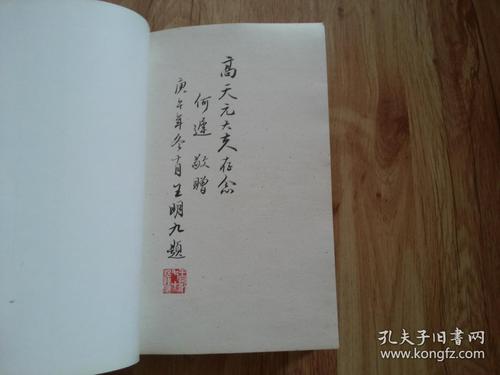 高天元大夫存念
何遲 敬贈
庚午年冬月王明九题
孔夫子旧书网
www.kongfz.com